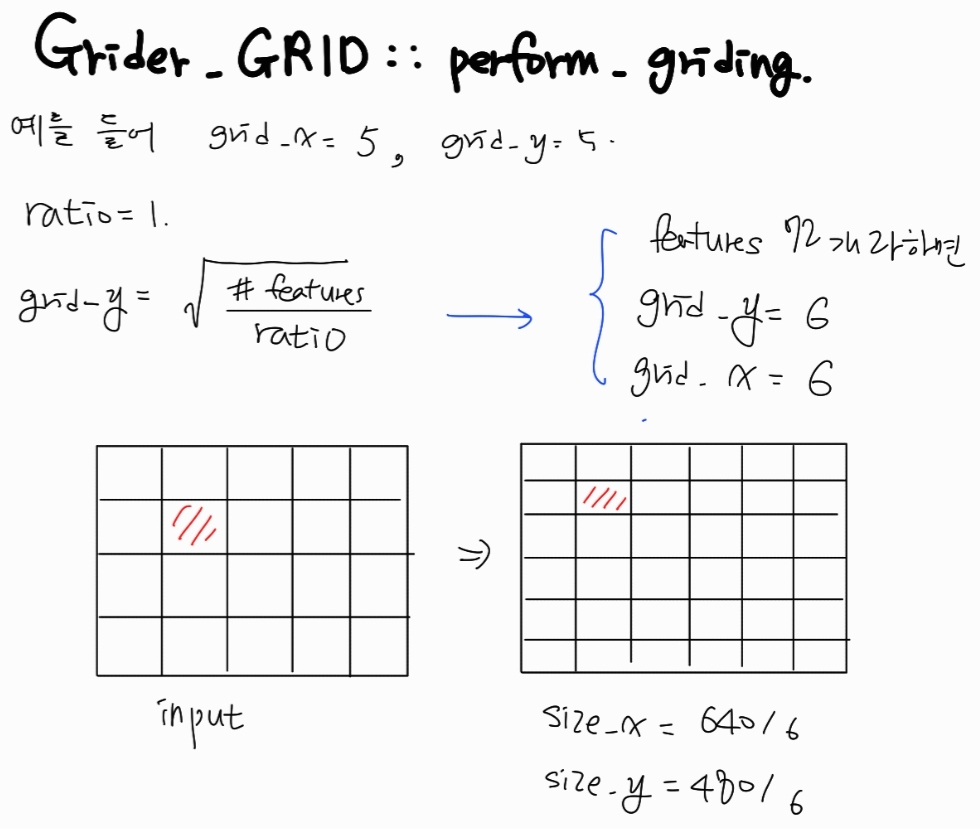 Grider_GRID :: perform_griding.
예를 들어 grid_x = 5, grid_y = 5.
ratio = 1.
grid_y = √(# features / ratio)
features 72개라하면
grid_y = 6
grid_x = 6
input
size_x = 640/6
size_y = 480/6